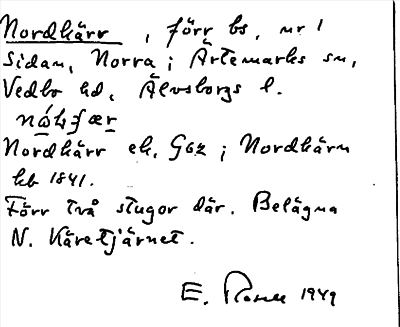 Nordkärr, förr bs, nr 1
Sidan, Norra; Ärtemarks sn,
Vedbo hd, Älvsborgs l.
Nordkärr ek. Gaz; Nordkärn
hb 1841.
Förr två stugor där. Belägna
N. Käretjärnet.
E. 1949